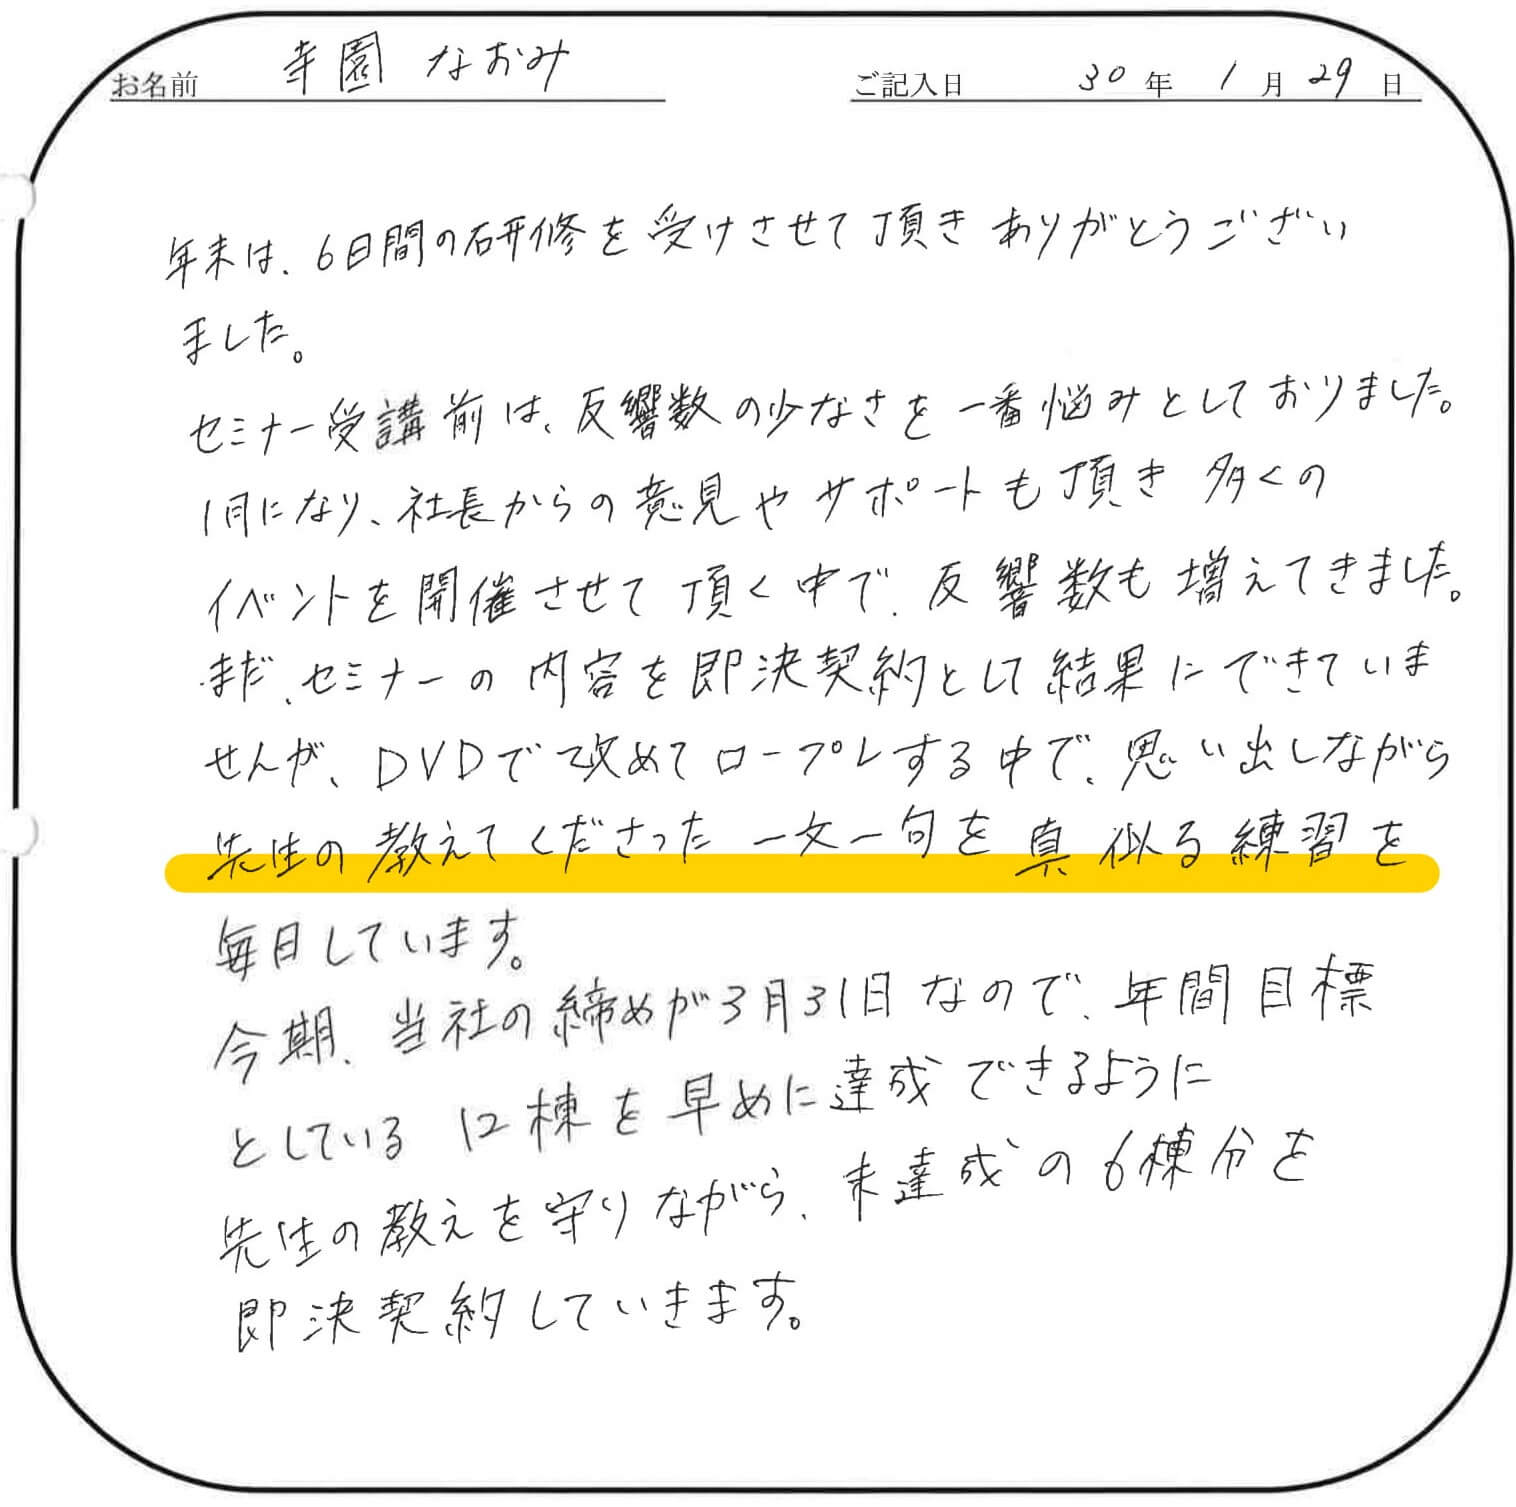 お名前 寺園 なおみ ご記入日 30年 1月 29日
年末は、6日間の研修を受けさせて頂きありがとうござい
ました。
セミナー受講前は、反響数の少なさを一番悩みとしておりました。
1月になり、社長からの意見やサポートも頂き多くの
イベントを開催させて頂く中で、反響数も増えてきました。
まだ、セミナーの内容を即決契約として結果にできていま
せんが、DVDで改めてロープレする中で、思い出しながら
先生の教えてくださった一文一句を真似る練習を
毎日しています。
今期、当社の締めが3月31日なので、年間目標
としている12棟を早めに達成できるように
先生の教えを守りながら、未達成の6棟分を
即決契約していきます。